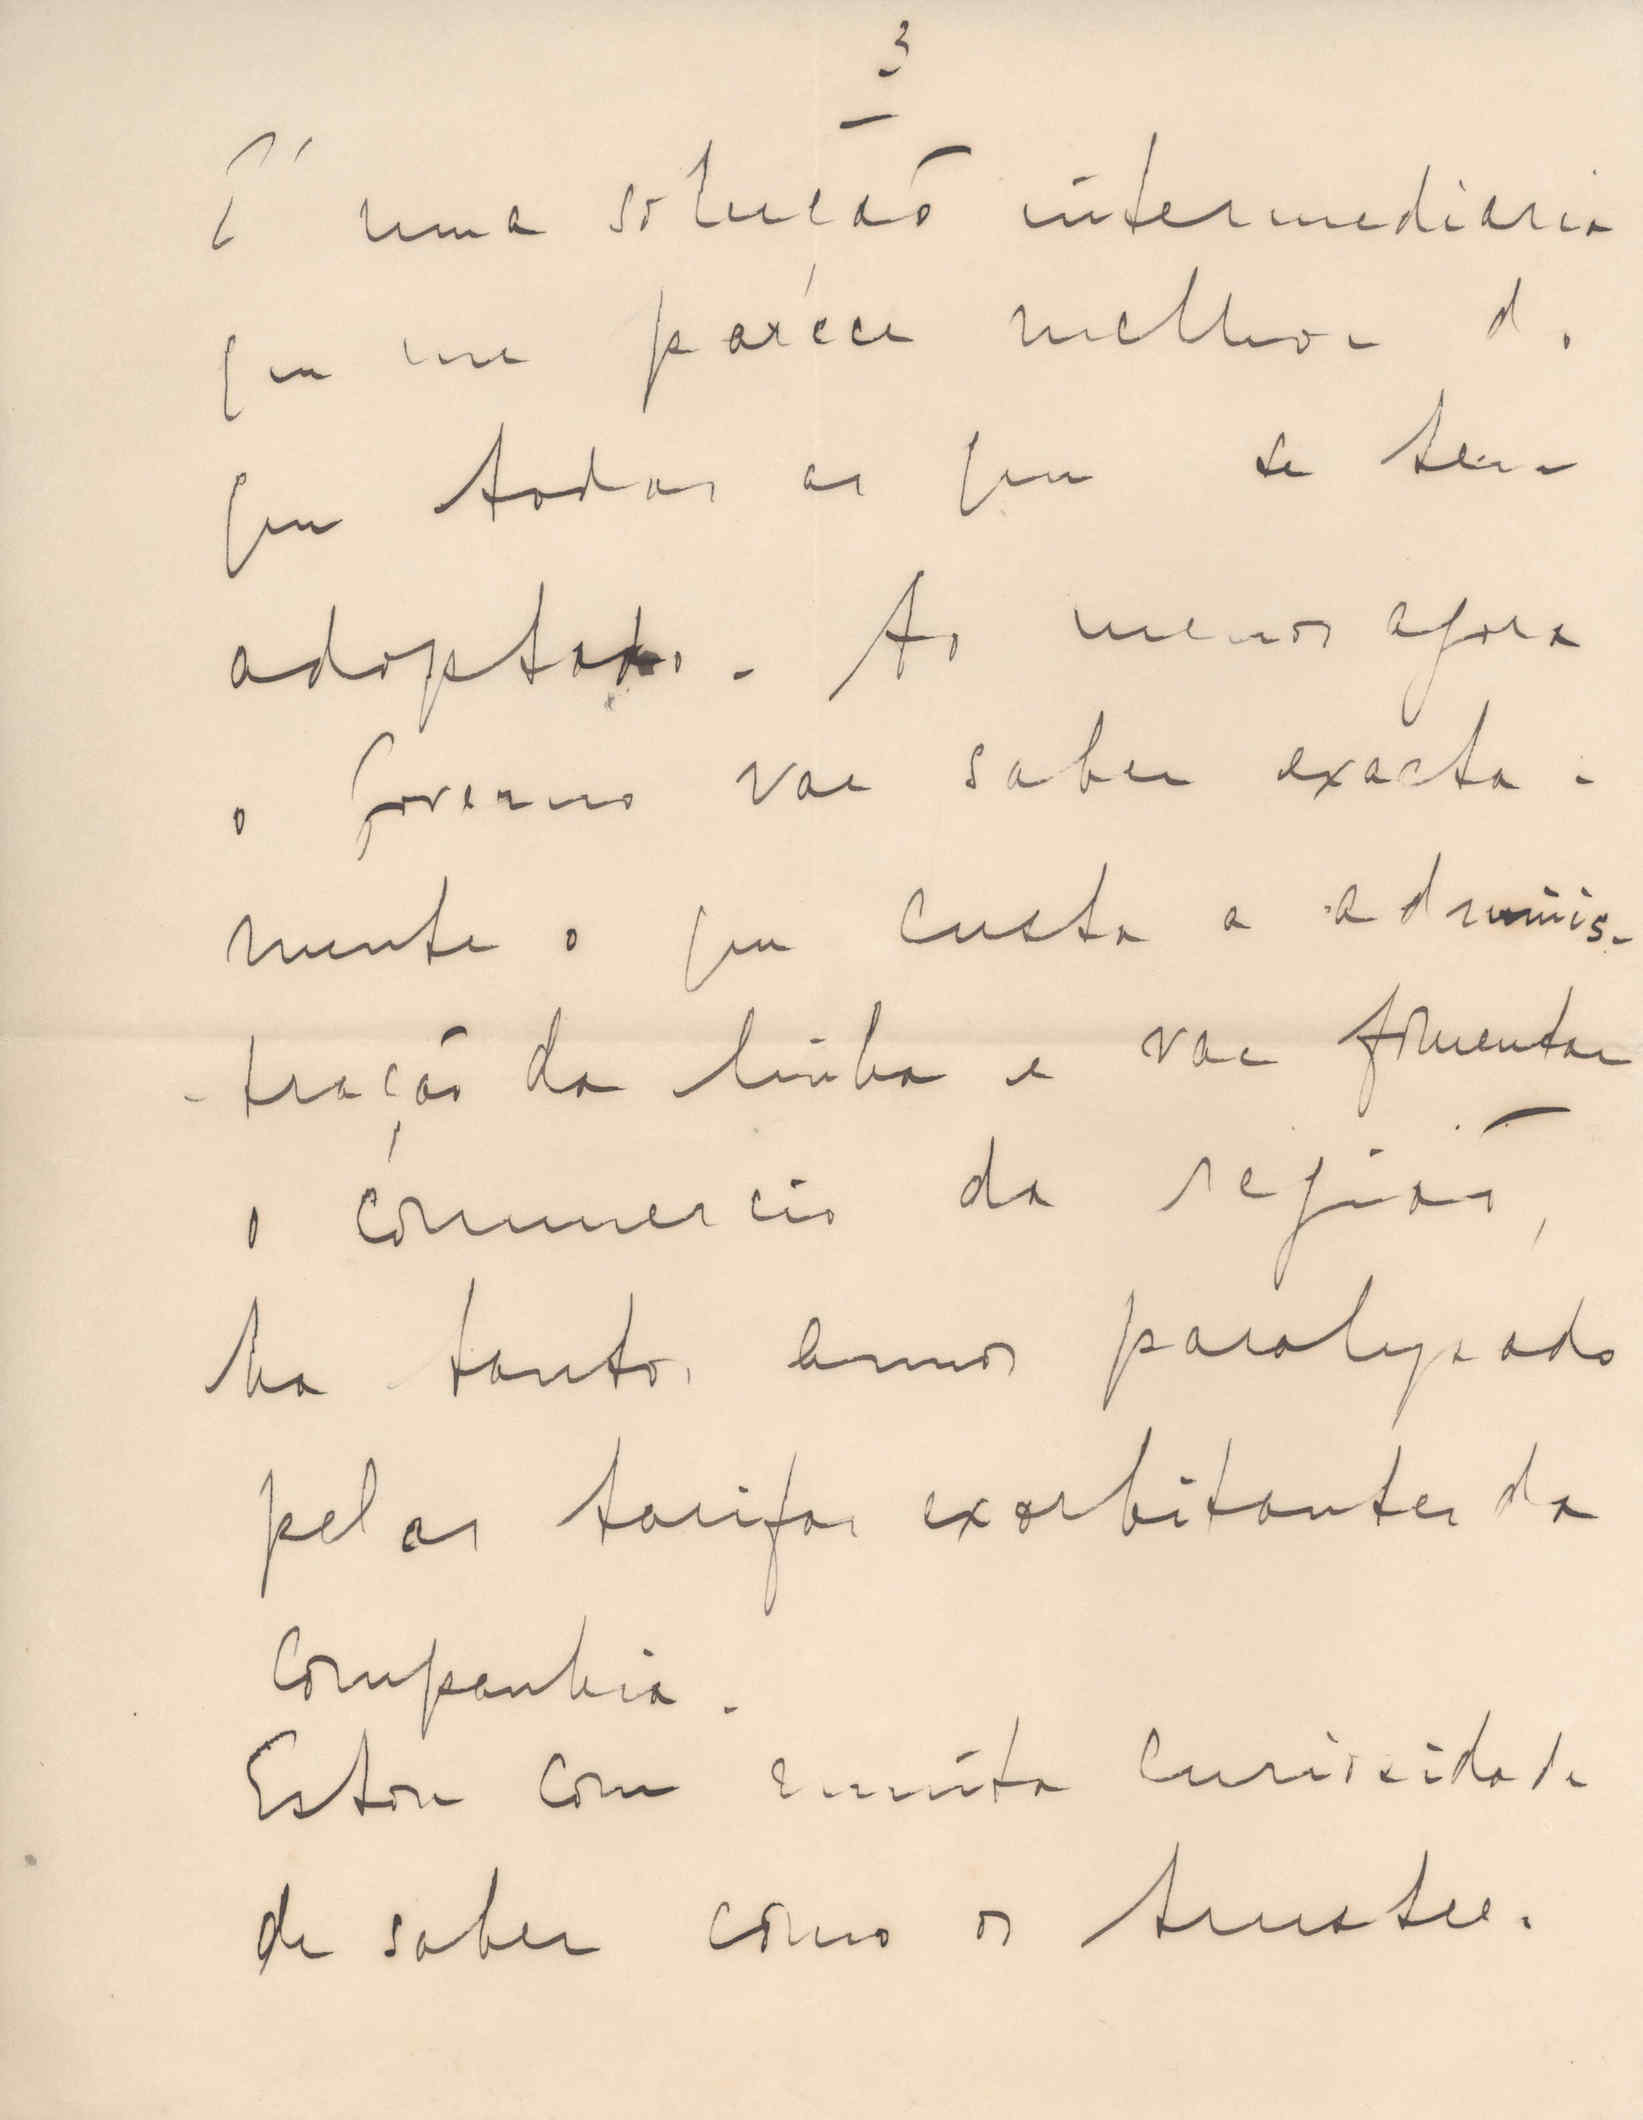 3
É uma solução intermediaria
que me parece melhor do
que todas as que se tem
adoptado. Ao menos agora
o Governo vae saber exacta-
mente o que custa a adminis-
-tração da linha e vae fomentar
o commercio da região,
ha tantos annos paralysado
pelas tarifas exorbitantes da
Companhia.
Estou com muita curiosidade
de saber como os trustees